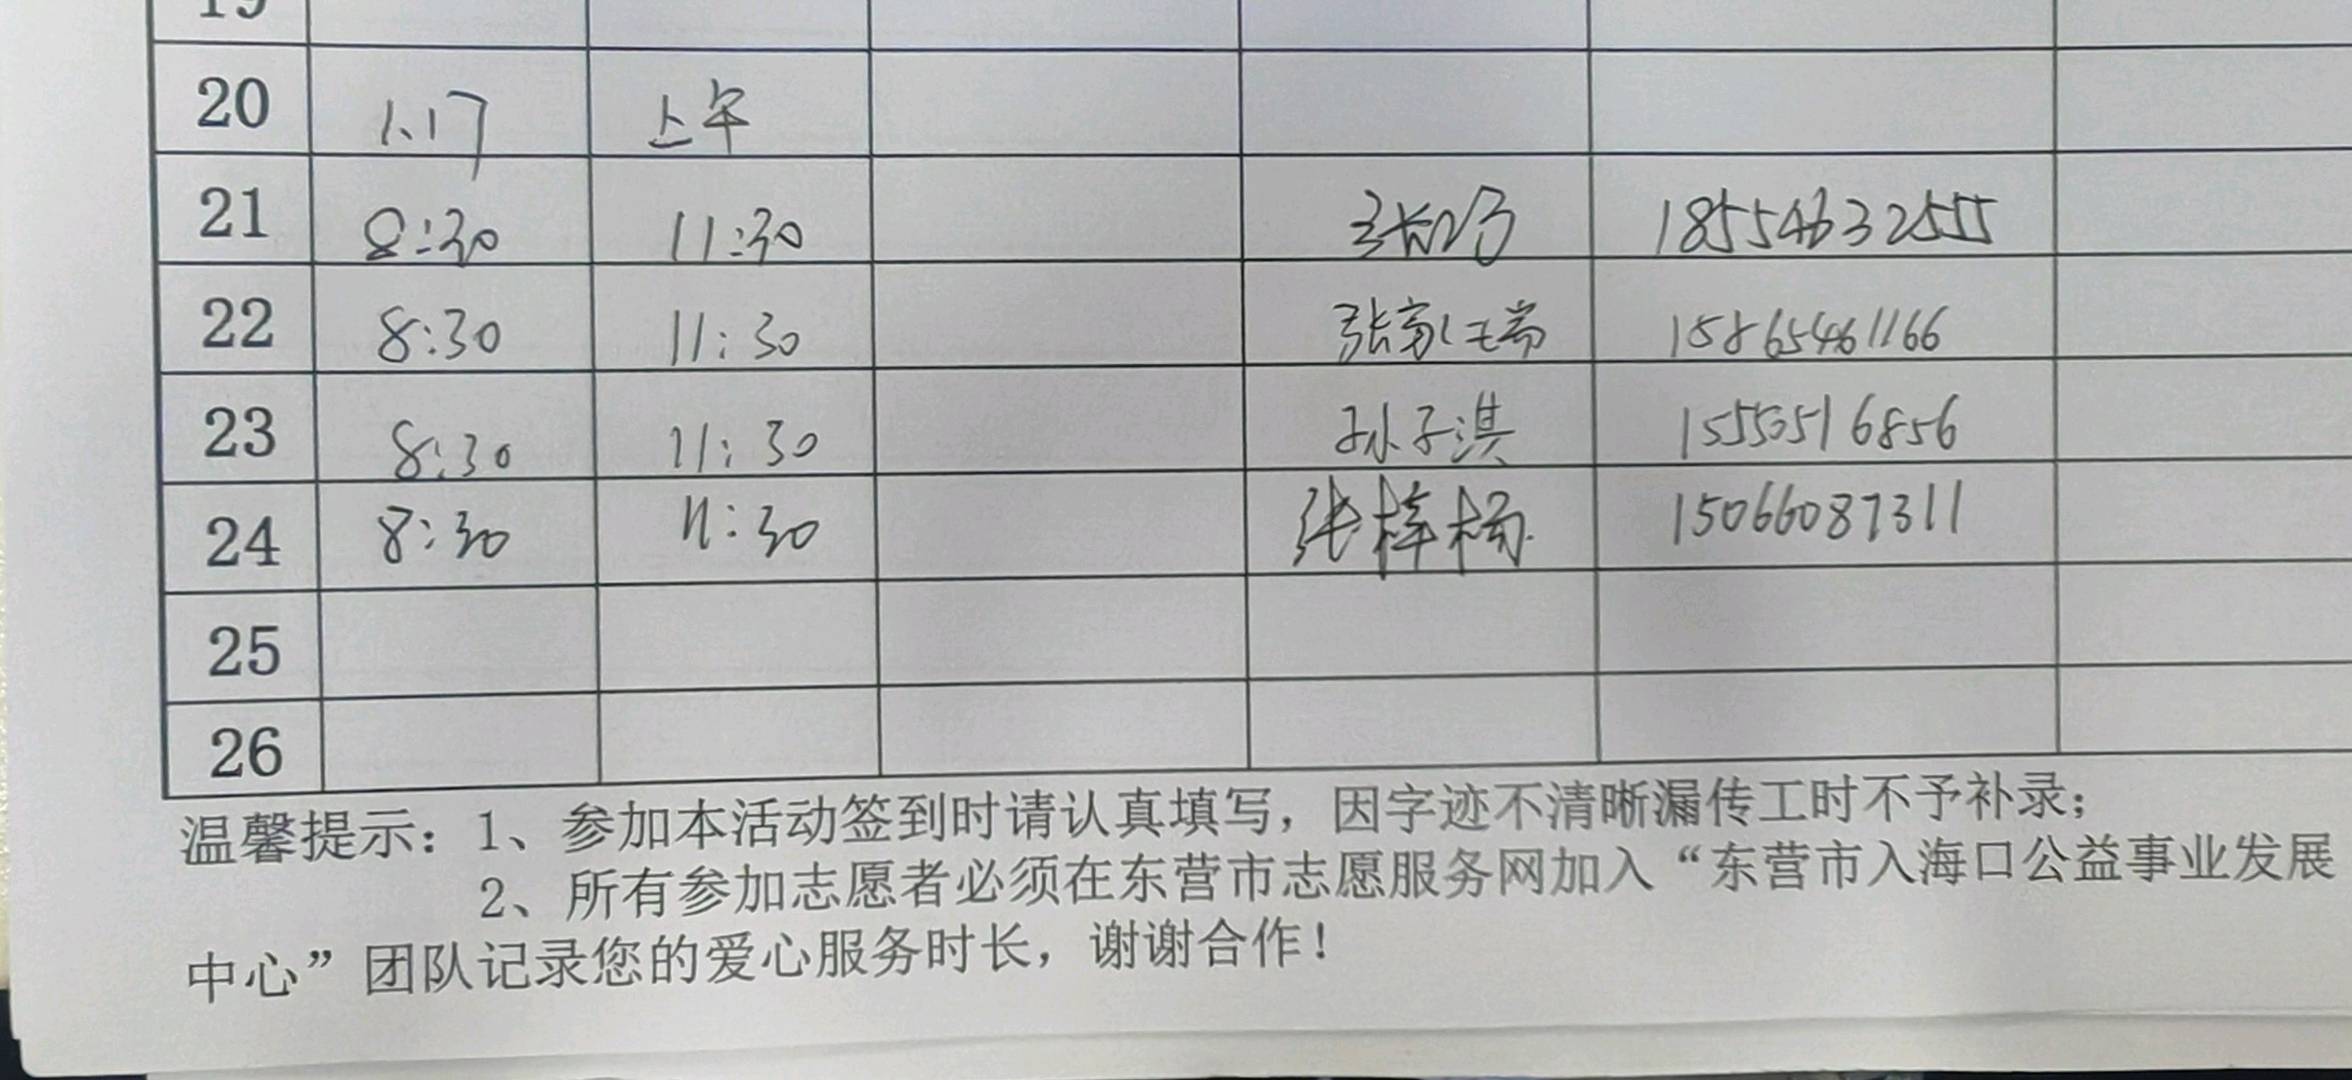 19
20 1.17 上午
21 8:30 11:30 18554632555
22 8:30 11:30 张家瑞 15865461166
23 8:30 11:30 孙子淇 15550516856
24 8:30 11:30 张梓杨 15066087311
25
26
温馨提示：1、参加本活动签到时请认真填写，因字迹不清晰漏传工时不予补录；
2、所有参加志愿者必须在东营市志愿服务网加入“东营市入海口公益事业发展
中心”团队记录您的爱心服务时长，谢谢合作！